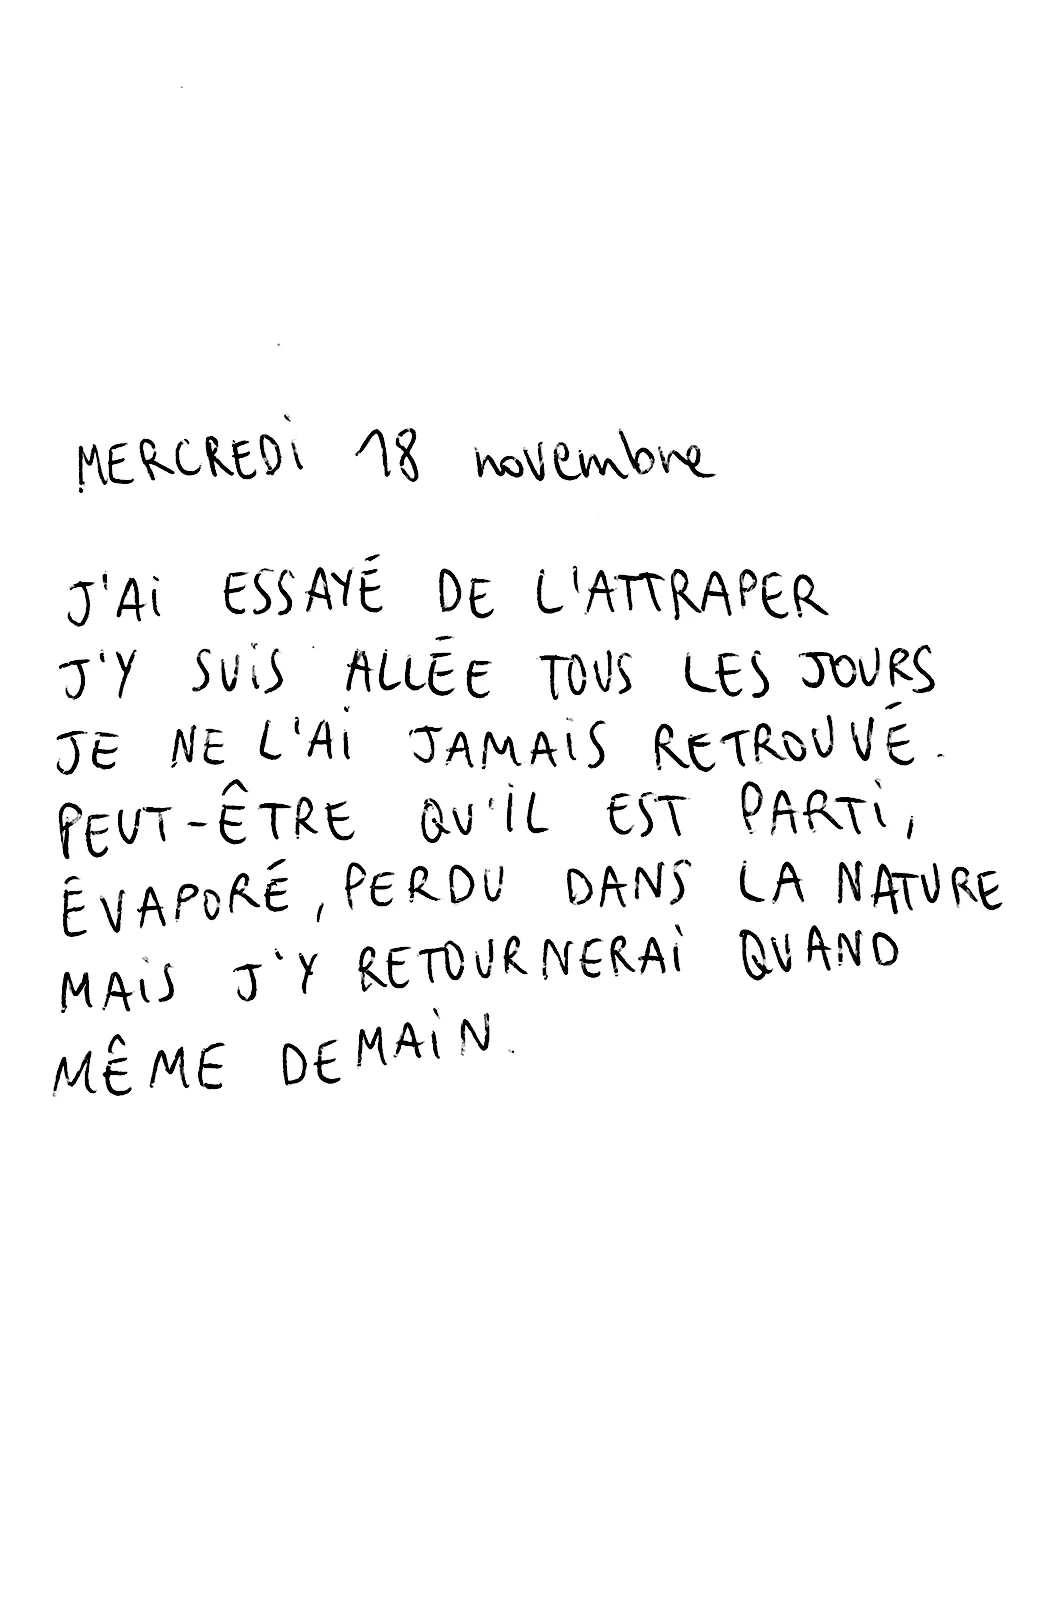 MERCREDI 18 novembre
J'AI ESSAYÉ DE L'ATTRAPER
J'Y SUIS ALLÉE TOUS LES JOURS
JE NE L'AI JAMAIS RETROUVÉ.
PEUT-ÊTRE QU'IL EST PARTI,
ÉVAPORÉ, PERDU DANS LA NATURE
MAIS J'Y RETOURNERAI QUAND
MÊME DEMAIN.